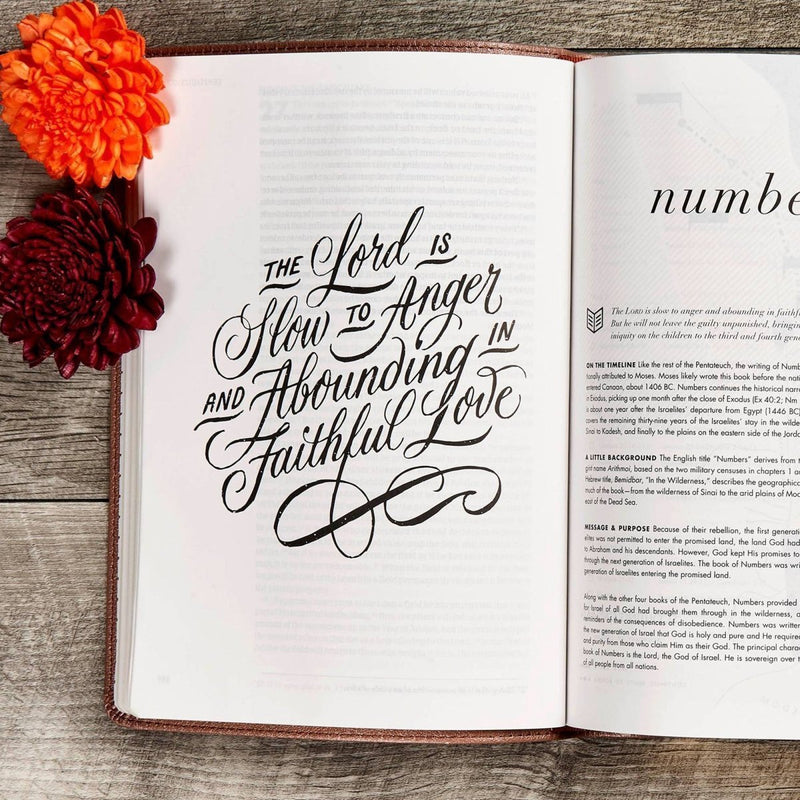 THE Lord IS
Slow TO Anger
AND Abounding IN
Faithful Love
numbe
The LORD is slow to anger and abounding in faithf
But he will not leave the guilty unpunished, bringing
iniquity on the children to the third and fourth gene
ON THE TIMELINE Like the rest of the Pentateuch, the writing of Numb
tionally attributed to Moses. Moses likely wrote this book before the nati
entered Canaan, about 1406 BC. Numbers continues the historical narr
in Exodus, picking up one month after the close of Exodus (Ex 40:2; Nm
is about one year after the Israelites' departure from Egypt (1446 BC)
covers the remaining thirty-nine years of the Israelites' stay in the wilde
Sinai to Kadesh, and finally to the plains on the eastern side of the Jorda
A LITTLE BACKGROUND The English title "Numbers" derives from t
gint name Arithmoi, based on the two military censuses in chapters 1 an
Hebrew title, Bemidbar, "In the Wilderness," describes the geographica
much of the book—from the wilderness of Sinai to the arid plains of Moa
east of the Dead Sea.
MESSAGE & PURPOSE Because of their rebellion, the first generatio
elites was not permitted to enter the promised land, the land God had
to Abraham and his descendants. However, God kept His promises to
through the next generation of Israelites. The book of Numbers was wri
generation of Israelites entering the promised land.
Along with the other four books of the Pentateuch, Numbers provided
for Israel of all God had brought them through in the wilderness, a
reminders of the consequences of disobedience. Numbers was written
the new generation of Israel that God is holy and pure and He require
and purity from those who claim Him as their God. The principal chara
book of Numbers is the Lord, the God of Israel. He is sovereign over t
of all people from all nations.